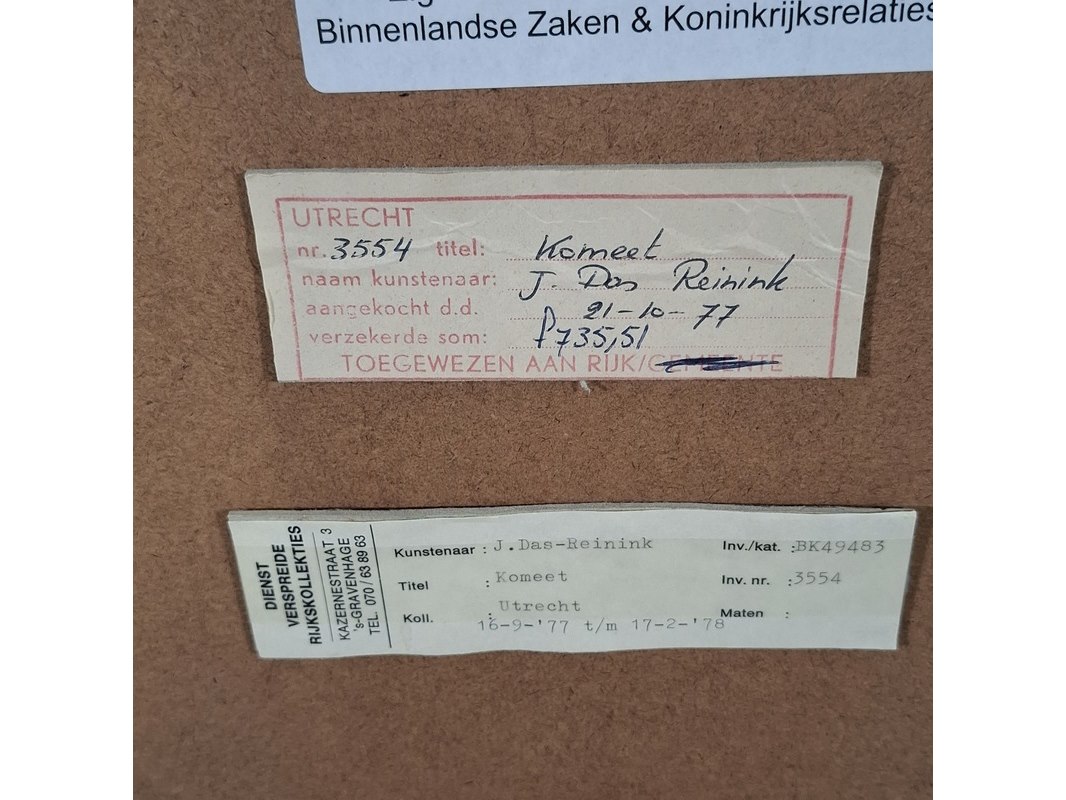 Binnenlandse Zaken & Koninkrijksrelaties
UTRECHT
nr. 3554 titel: Komeet
naam kunstenaar: J. Das Reinink
aangekocht d.d. 21-10-77
verzekerde som: f 735,51
TOEGEWEZEN AAN RIJK/GEMEENTE
DIENST
VERSPREIDE
RIJKSKOLLEKTIES
KAZERNESTRAAT 3
's-GRAVENHAGE
TEL. 070/63 89 63
Kunstenaar : J.Das-Reinink Inv./kat. :BK49483
Titel : Komeet Inv. nr. :3554
Koll. : Utrecht Maten :
16-9-'77 t/m 17-2-'78